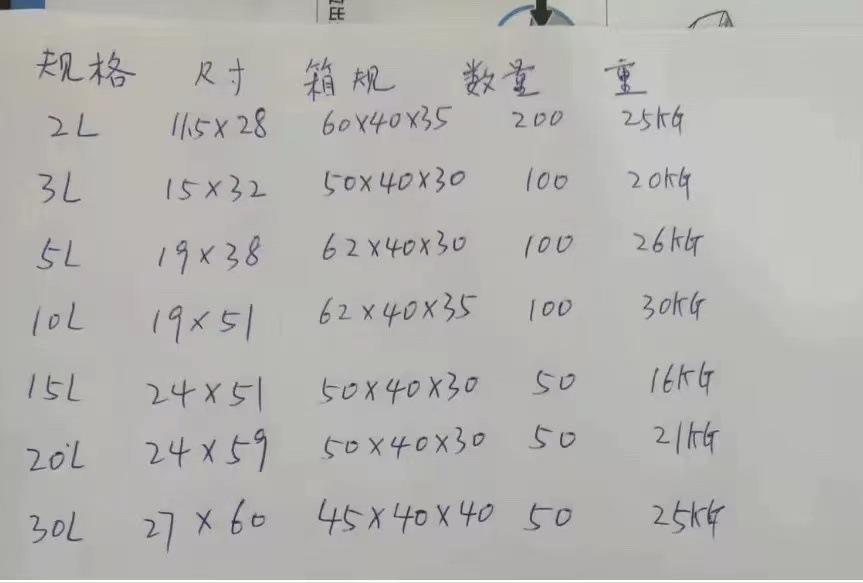 规格 尺寸 箱规 数量 重
2L 11.5×28 60×40×35 200 25KG
3L 15×32 50×40×30 100 20KG
5L 19×38 62×40×30 100 26KG
10L 19×51 62×40×35 100 30KG
15L 24×51 50×40×30 50 16KG
20L 24×59 50×40×30 50 21KG
30L 27×60 45×40×40 50 25KG